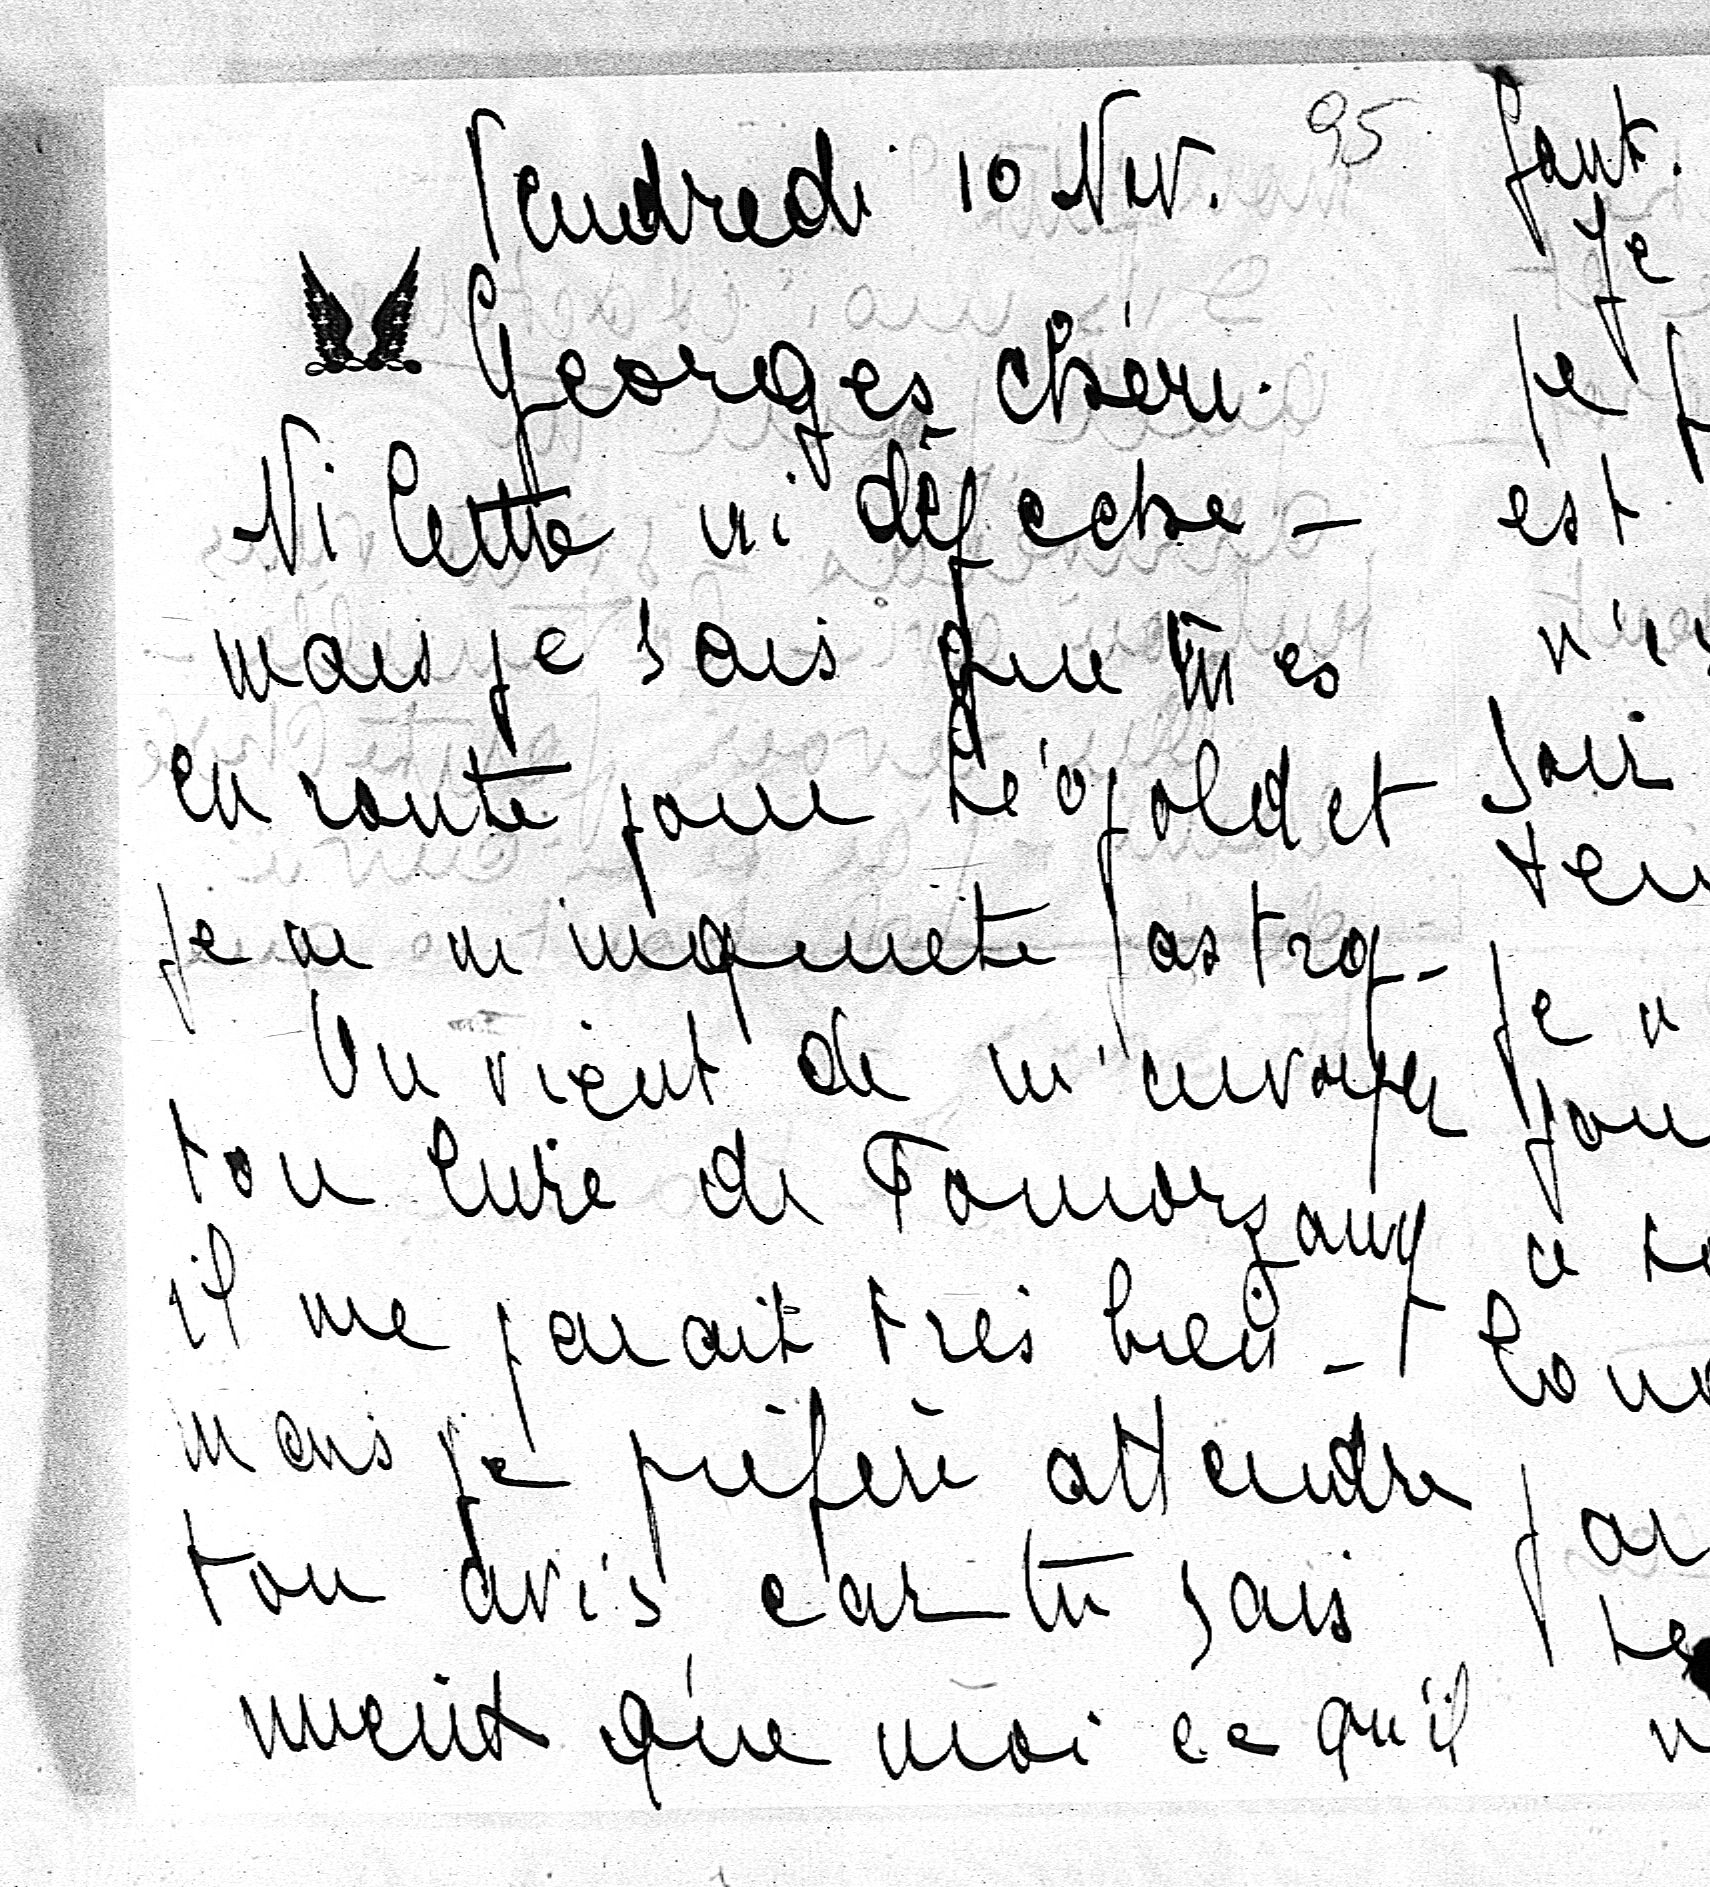 95
Vendredi 10 Nov.
Georges chéri.
Ni lettre ni dépeche –
mais je sais que tu es
en route pour Léopold et
je ne m inquiète pas trop –
On vient de m'envoyer
ton livre de
il me parait très bien –
mais je préfère attendre
ton avis car tu sais
mieux que moi ce qu'il
faut.
Je
je p
est
n'es
soir
ten
je n
pou
a to
Lon
par
te
n